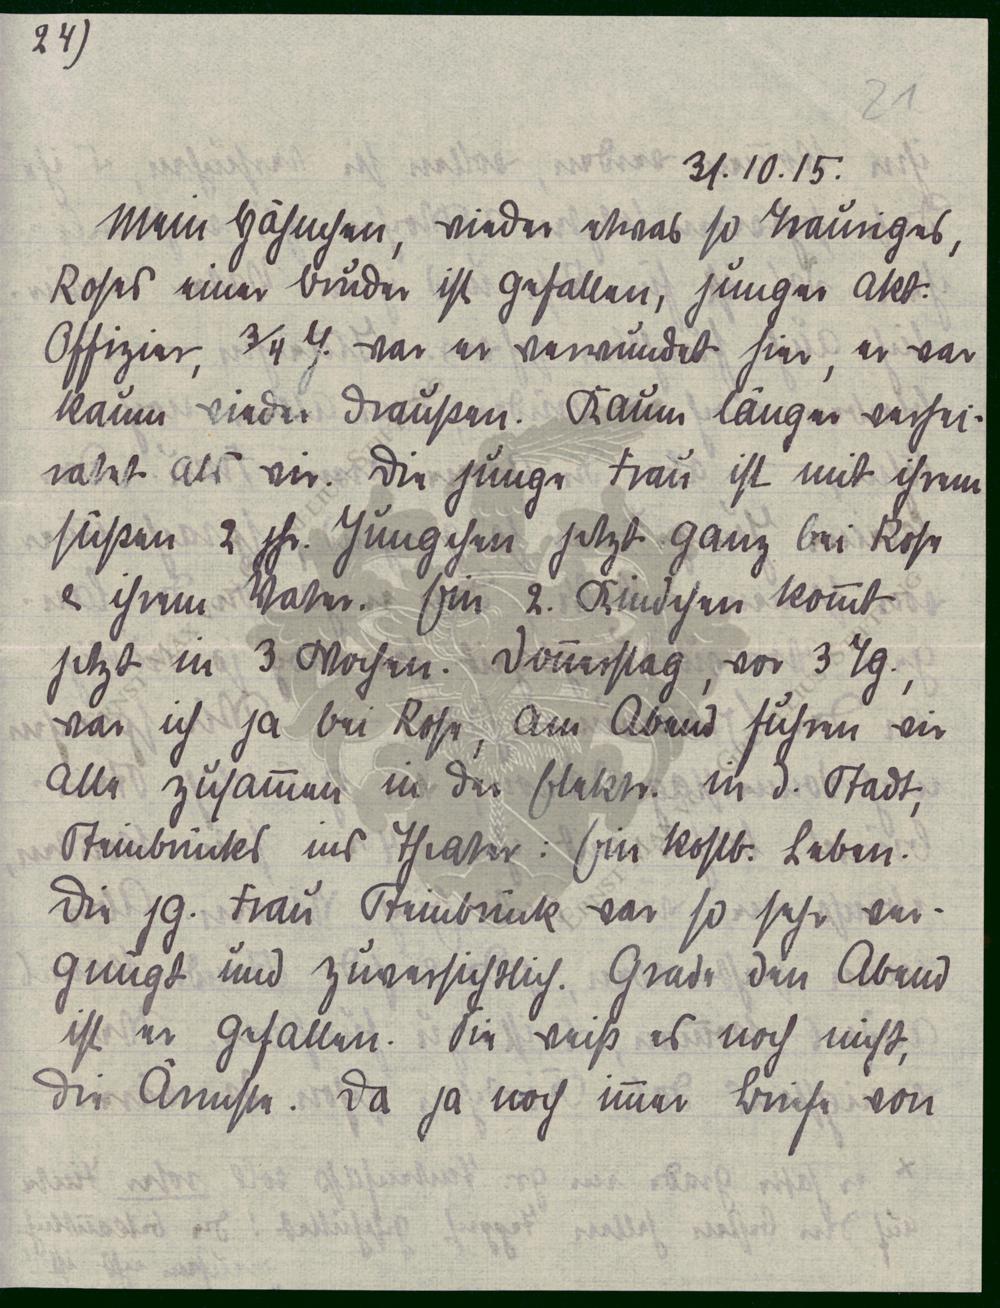 24)
21
31.10.15.
Mein Hähnchen, wieder etwas so Trauriges,
Roses einer Bruder ist gefallen, junger akt.
Offizier, 3/4 J. war er verwundet hier, er war
kaum wieder draußen. Kaum länger verhei-
ratet als wir. Die junge Frau ist mit ihrem
süßen 2 jhr. Jungchen jetzt ganz bei Rose
& ihrem Vater. Ein 2. Kindchen kom̄t
jetzt in 3 Wochen. Don̄erstag, vor 3 Tg.,
war ich ja bei Rose, am Abend fuhren wir
alle zusam̄en in der Elektr. in d. Stadt,
Steinbrücks ins Theater: Ein kostb. Leben.
Die jg. Frau Steinbrück war so sehr ver-
gnügt und zuversichtlich. Grade den Abend
ist er gefallen. Sie weiß es noch nicht,
die Ärmste. Da ja noch im̄er Briefe von